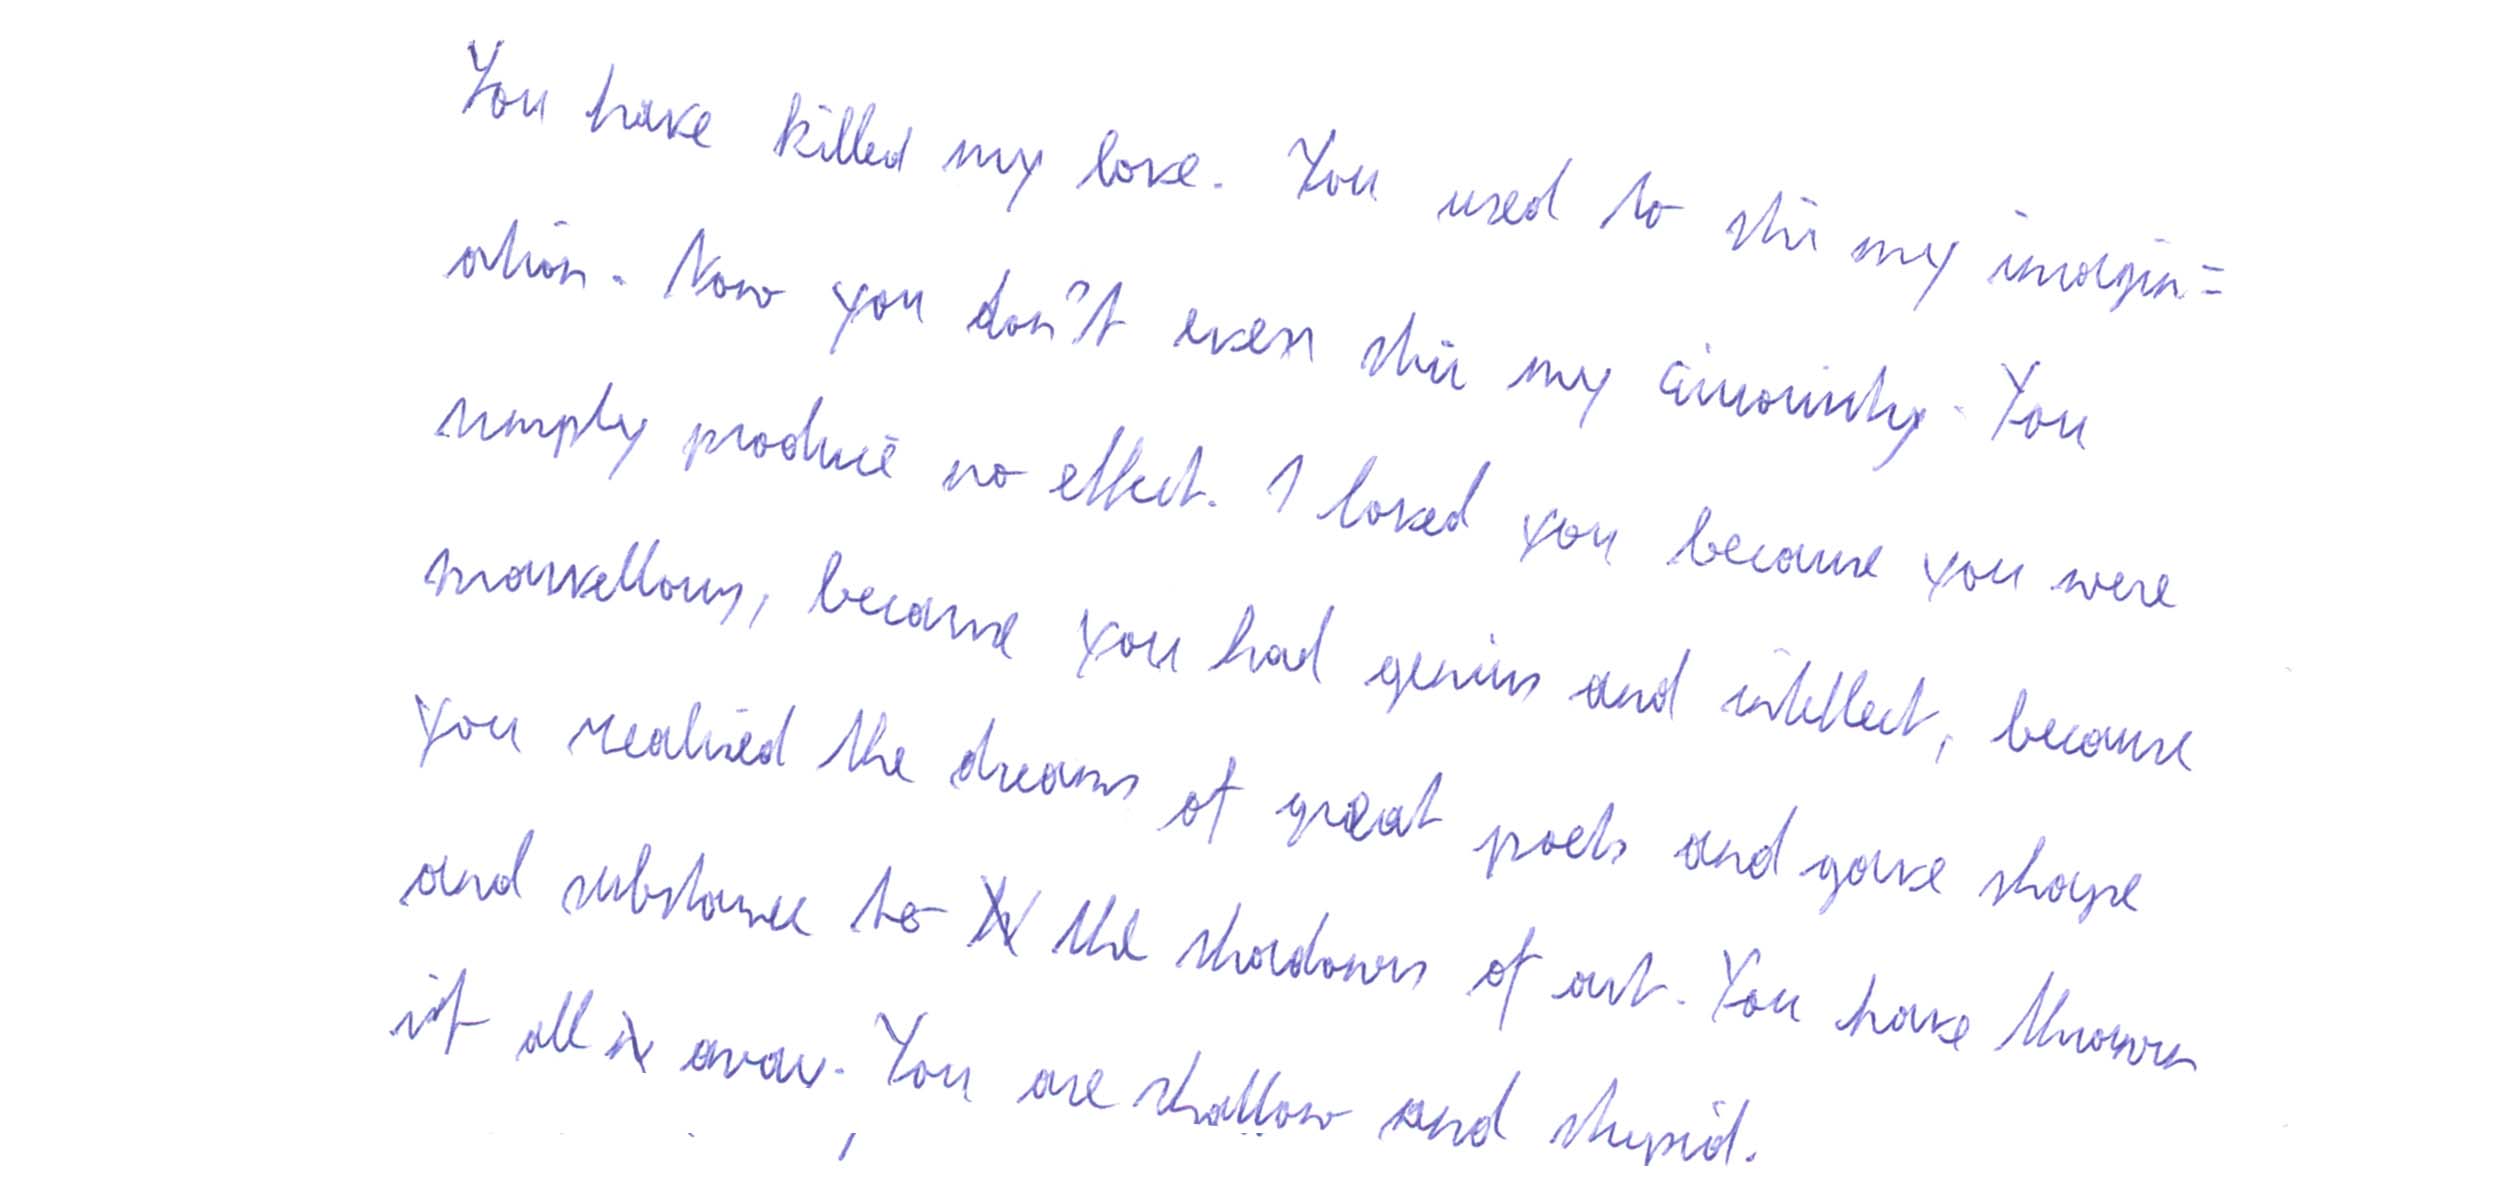 You have killed my love. You used to stir my imagin=
ation. Now you don't even stir my curiosity. You
simply produce no effect. I loved you because you were
marvellous, because you had genius and intellect, because
you realised the dreams of great poets and gave shape
and substance to the shadows of art. You have thrown
it all away. You are shallow and stupid.